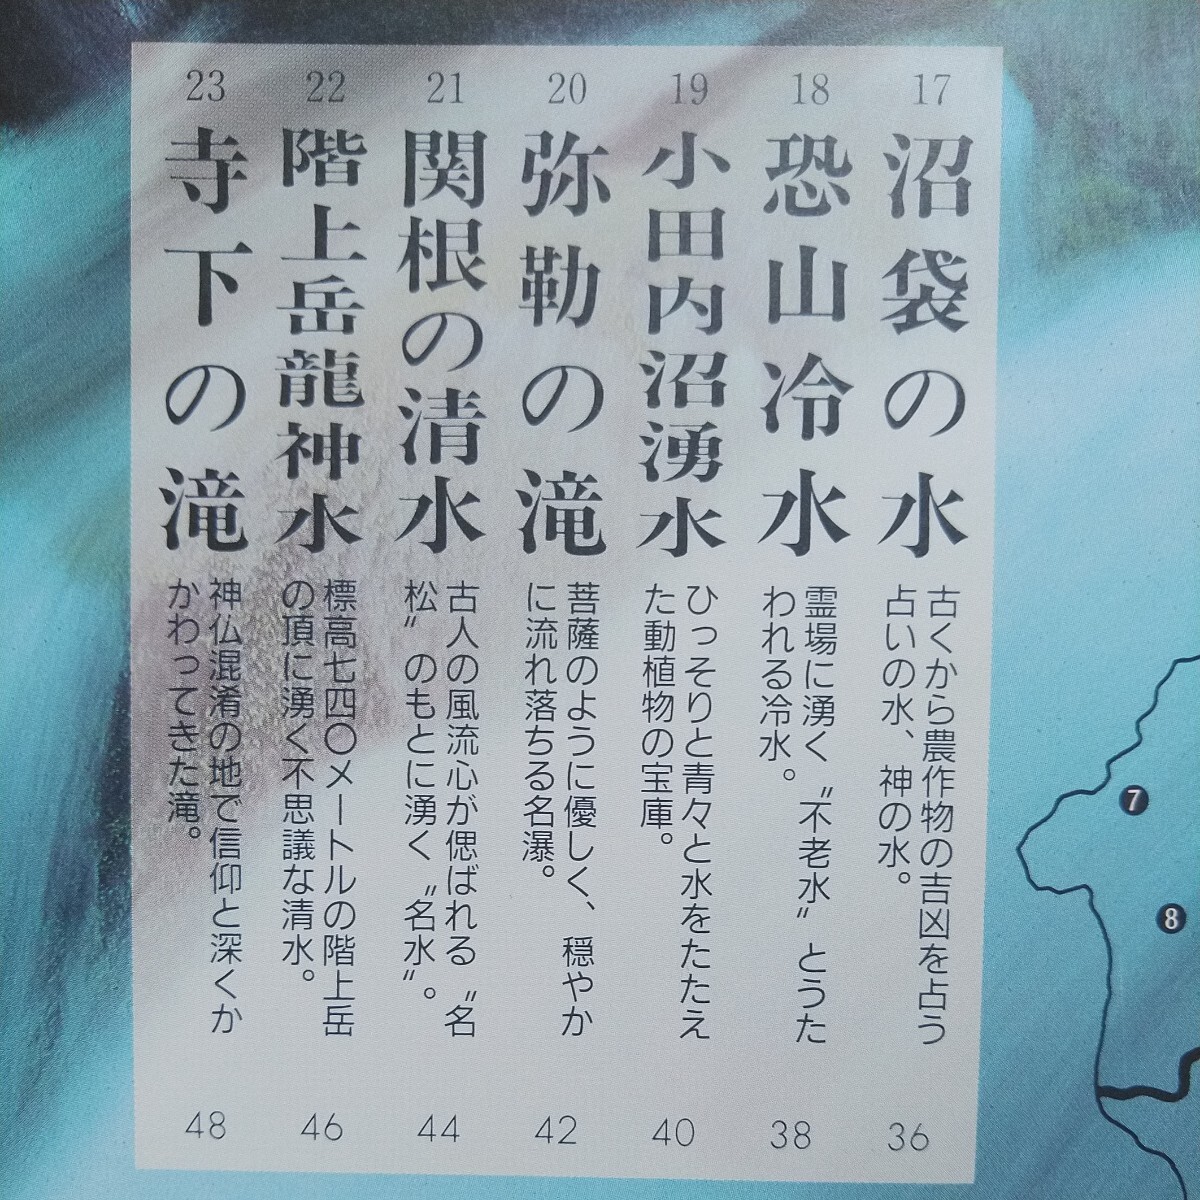 17
沼袋の水
古くから農作物の吉凶を占う
占いの水、神の水。
36
18
恐山冷水
霊場に湧く〝不老水〟とうた
われる冷水。
38
19
小田内沼湧水
ひっそりと青々と水をたたえ
た動植物の宝庫。
40
20
弥勒の滝
菩薩のように優しく、穏やか
に流れ落ちる名瀑。
42
21
関根の清水
古人の風流心が偲ばれる〝名
松〟のもとに湧く〝名水〟。
44
22
階上岳龍神水
標高七四〇メートルの階上岳
の頂に湧く不思議な清水。
46
23
寺下の滝
神仏混淆の地で信仰と深くか
かわってきた滝。
48
7
8